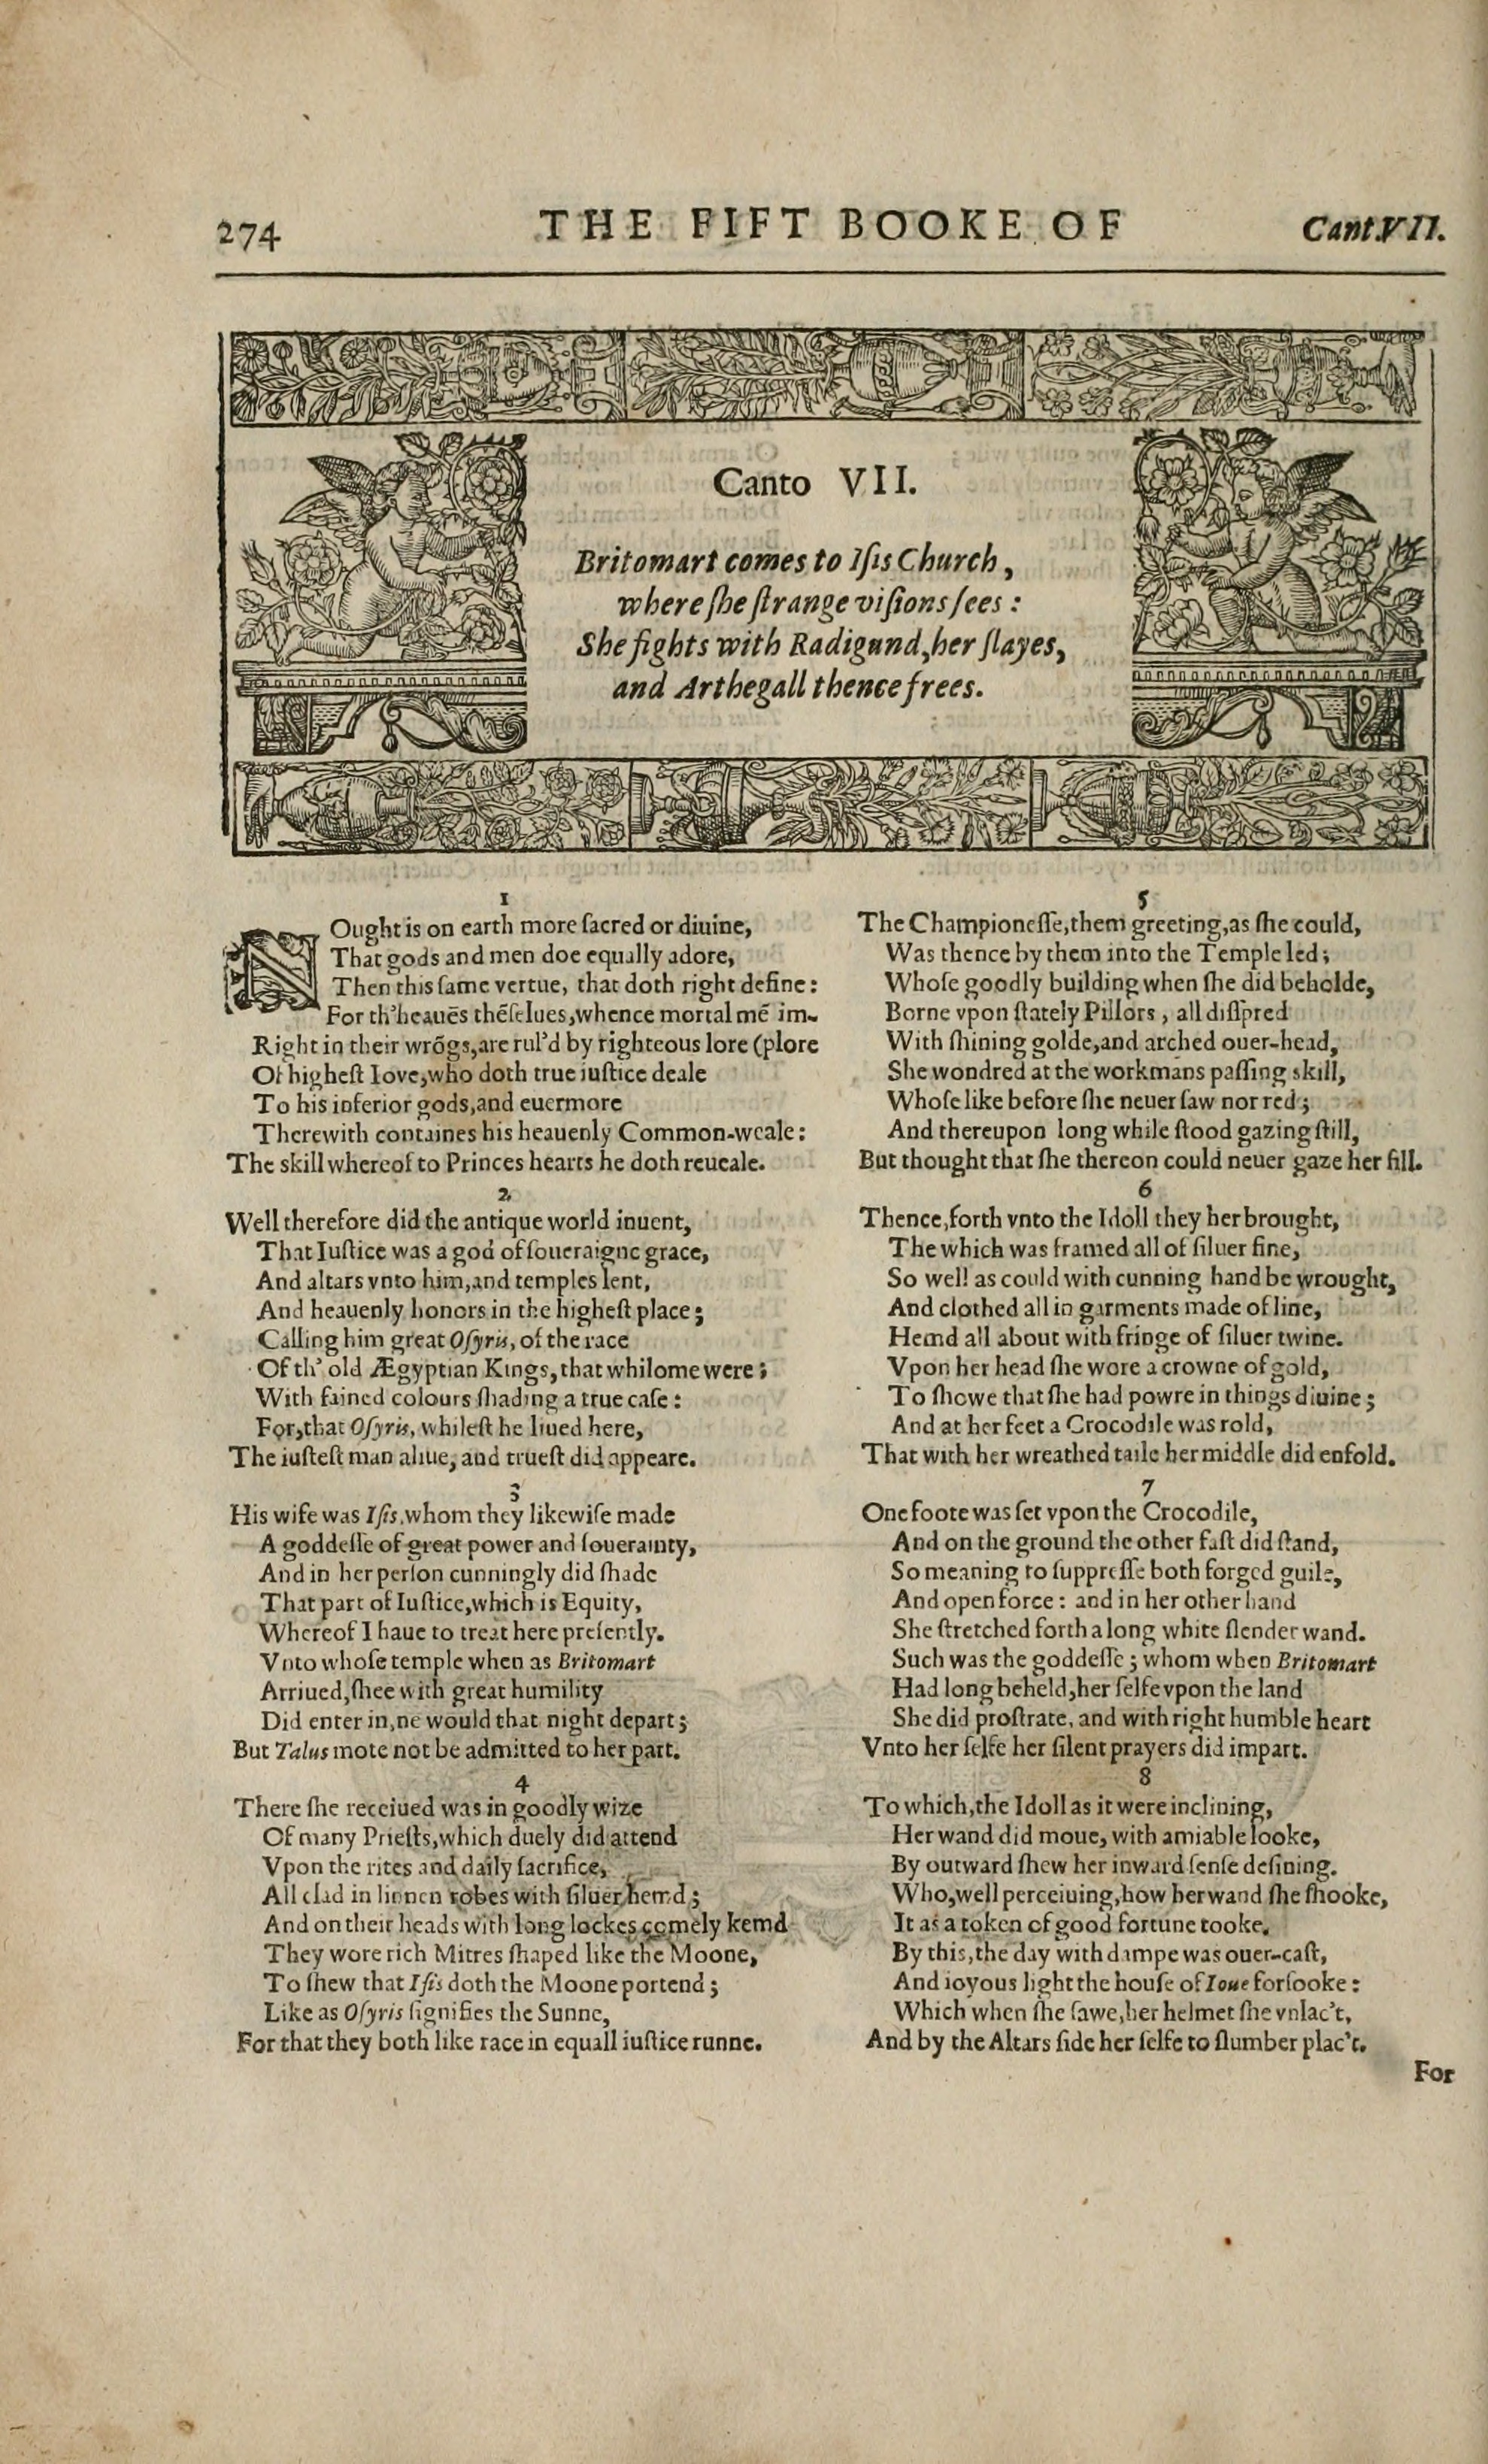 274 THE FIFT BOOKE OF Cant.VII.
Canto VII.
Britomart comes to Iſis Church,
where ſhe ſtrange viſions ſees:
She fights with Radigund, her ſlayes,
and Arthegall thence frees.
1
NOught is on earth more ſacred or diuine,
That gods and men doe equally adore,
Then this ſame vertue, that doth right define:
For th'heauēs thēſelues, whence mortal mē im-
Right in their wrōgs, are rul'd by righteous lore (plore
Of higheſt Iove, who doth true iuſtice deale
To his inferior gods, and euermore
Therewith containes his heauenly Common-weale:
The skill whereof to Princes hearts he doth reueale.
2
Well therefore did the antique world inuent,
That Iuſtice was a god of ſoueraigne grace,
And altars vnto him, and temples lent,
And heauenly honors in the higheſt place;
Calling him great Oſyris, of the race
Of th' old Ægyptian Kings, that whilome were;
With fained colours ſhading a true caſe:
For, that Oſyris, whileſt he liued here,
The iuſteſt man aliue, and trueſt did appeare.
3
His wife was Iſis, whom they likewiſe made
A goddeſſe of great power and ſouerainty,
And in her perſon cunningly did ſhade
That part of Iuſtice, which is Equity,
Whereof I haue to treat here preſently.
Vnto whoſe temple when as Britomart
Arriued, ſhee with great humility
Did enter in, ne would that night depart;
But Talus mote not be admitted to her part.
4
There ſhe receiued was in goodly wize
Of many Prieſts, which duely did attend
Vpon the rites and daily ſacrifice,
All clad in linnen robes with ſiluer hemd;
And on their heads with long lockes comely kemd
They wore rich Mitres ſhaped like the Moone,
To ſhew that Iſis doth the Moone portend;
Like as Oſyris ſignifies the Sunne,
For that they both like race in equall iuſtice runne.
5
The Championeſſe, them greeting, as ſhe could,
Was thence by them into the Temple led;
Whoſe goodly building when ſhe did beholde,
Borne vpon ſtately Pillors, all diſpred
With ſhining golde, and arched ouer-head,
She wondred at the workmans paſſing skill,
Whoſe like before ſhe neuer ſaw nor red;
And thereupon long while ſtood gazing ſtill,
But thought that ſhe thereon could neuer gaze her fill.
6
Thence, forth vnto the Idoll they her brought,
The which was framed all of ſiluer fine,
So well as could with cunning hand be wrought,
And clothed all in garments made of line,
Hemd all about with fringe of ſiluer twine.
Vpon her head ſhe wore a crowne of gold,
To ſhowe that ſhe had powre in things diuine;
And at her feet a Crocodile was rold,
That with her wreathed taile her middle did enfold.
7
One foote was ſet vpon the Crocodile,
And on the ground the other faſt did ſtand,
So meaning to ſuppreſſe both forged guile,
And open force: and in her other hand
She ſtretched forth a long white ſlender wand.
Such was the goddeſſe; whom when Britomart
Had long beheld, her ſelfe vpon the land
She did proſtrate, and with right humble heart
Vnto her ſelfe her ſilent prayers did impart.
8
To which, the Idoll as it were inclining,
Her wand did moue, with amiable looke,
By outward ſhew her inward ſenſe deſining.
Who, well perceiuing, how her wand ſhe ſhooke,
It as a token of good fortune tooke.
By this, the day with dampe was ouer-caſt,
And ioyous light the houſe of Ioue forſooke:
Which when ſhe ſawe, her helmet ſhe vnlac't,
And by the Altars ſide her ſelfe to ſlumber plac't.
For